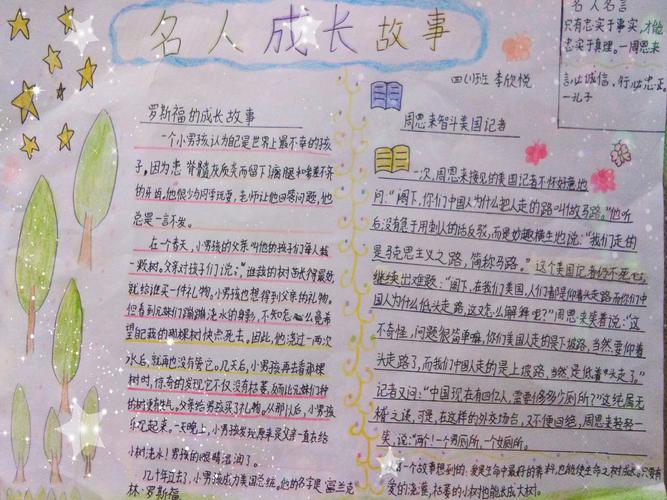 名人成长故事
名人名言
只有忠实于事实,才能
忠实于真理。一周恩来
言必诚信,行必忠正。
一孔子
四(1)班 李欣悦
罗斯福的成长故事
一个小男孩认为自己是世界上最不幸的孩
子,因为患脊髓灰质炎而留下了瘸腿和参差不齐
的牙齿。他很少与同学玩耍,老师让他回答问题,他
总是一言不发。
在一个春天,小男孩的父亲叫他的孩子们每人栽
一颗树。父亲对孩子们说:"谁栽的树苗长得最好,
就给谁买一件礼物。小男孩也想得到父亲的礼物。
但看到兄妹们蹦蹦跳跳浇水的身影,不知怎么竟希
望自己栽的那棵树快点死去。因此,他浇过一两次
水后,就再也没有管它。几天后,小男孩再去看那棵
树时,惊奇的发现它不仅没有枯萎,反而比兄妹们种
的树更有生气。父亲给男孩买了礼物。从那以后,小男孩
乐观起来。一天晚上,小男孩发现原来是父亲一直在给
小树浇水!男孩的眼睛湿润了。
几十年过去了,小男孩成为美国总统。他的名字是富兰克
林·罗斯福
周恩来智斗美国记者
一次,周恩来接见的美国记者不怀好意地
问:"阁下,你们中国人为什么把人走的路叫做马路。"他听
后没有急于用刺人的话反驳,而是妙趣横生地说:"我们走的
是马克思主义之路,简称马路。"这个美国记者仍不死心,
继续出难题:"阁下,在我们美国,人们都是仰着头走路,而你们中
国人为什么低头走路,这又怎么解释呢?"周恩来笑着说:"这
不奇怪,问题很简单嘛,你们美国人走的是下坡路,当然要仰着
头走路了,而我们中国人走的是上坡路,当然是低着头走了。"
记者又问:"中国现在有四亿人,需要修多少个厕所?"这纯属无
稽之谈,可是,在这样的外交场合,又不便回绝,周恩来轻轻一
笑,说:"两个!一个男厕所,一个女厕所。
一个故事想到的:爱是生命中最好的养料,也能使生命之树茁壮。只要有
爱的浇灌,枯萎的小树也能长成大树。